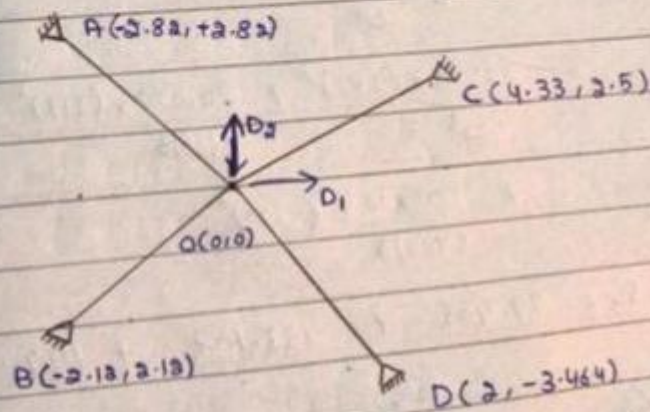 A(-2.82, +2.82)
C(4.33, 2.5)
D2
D1
O(0,0)
B(-2.12, 2.12)
D(2, -3.464)